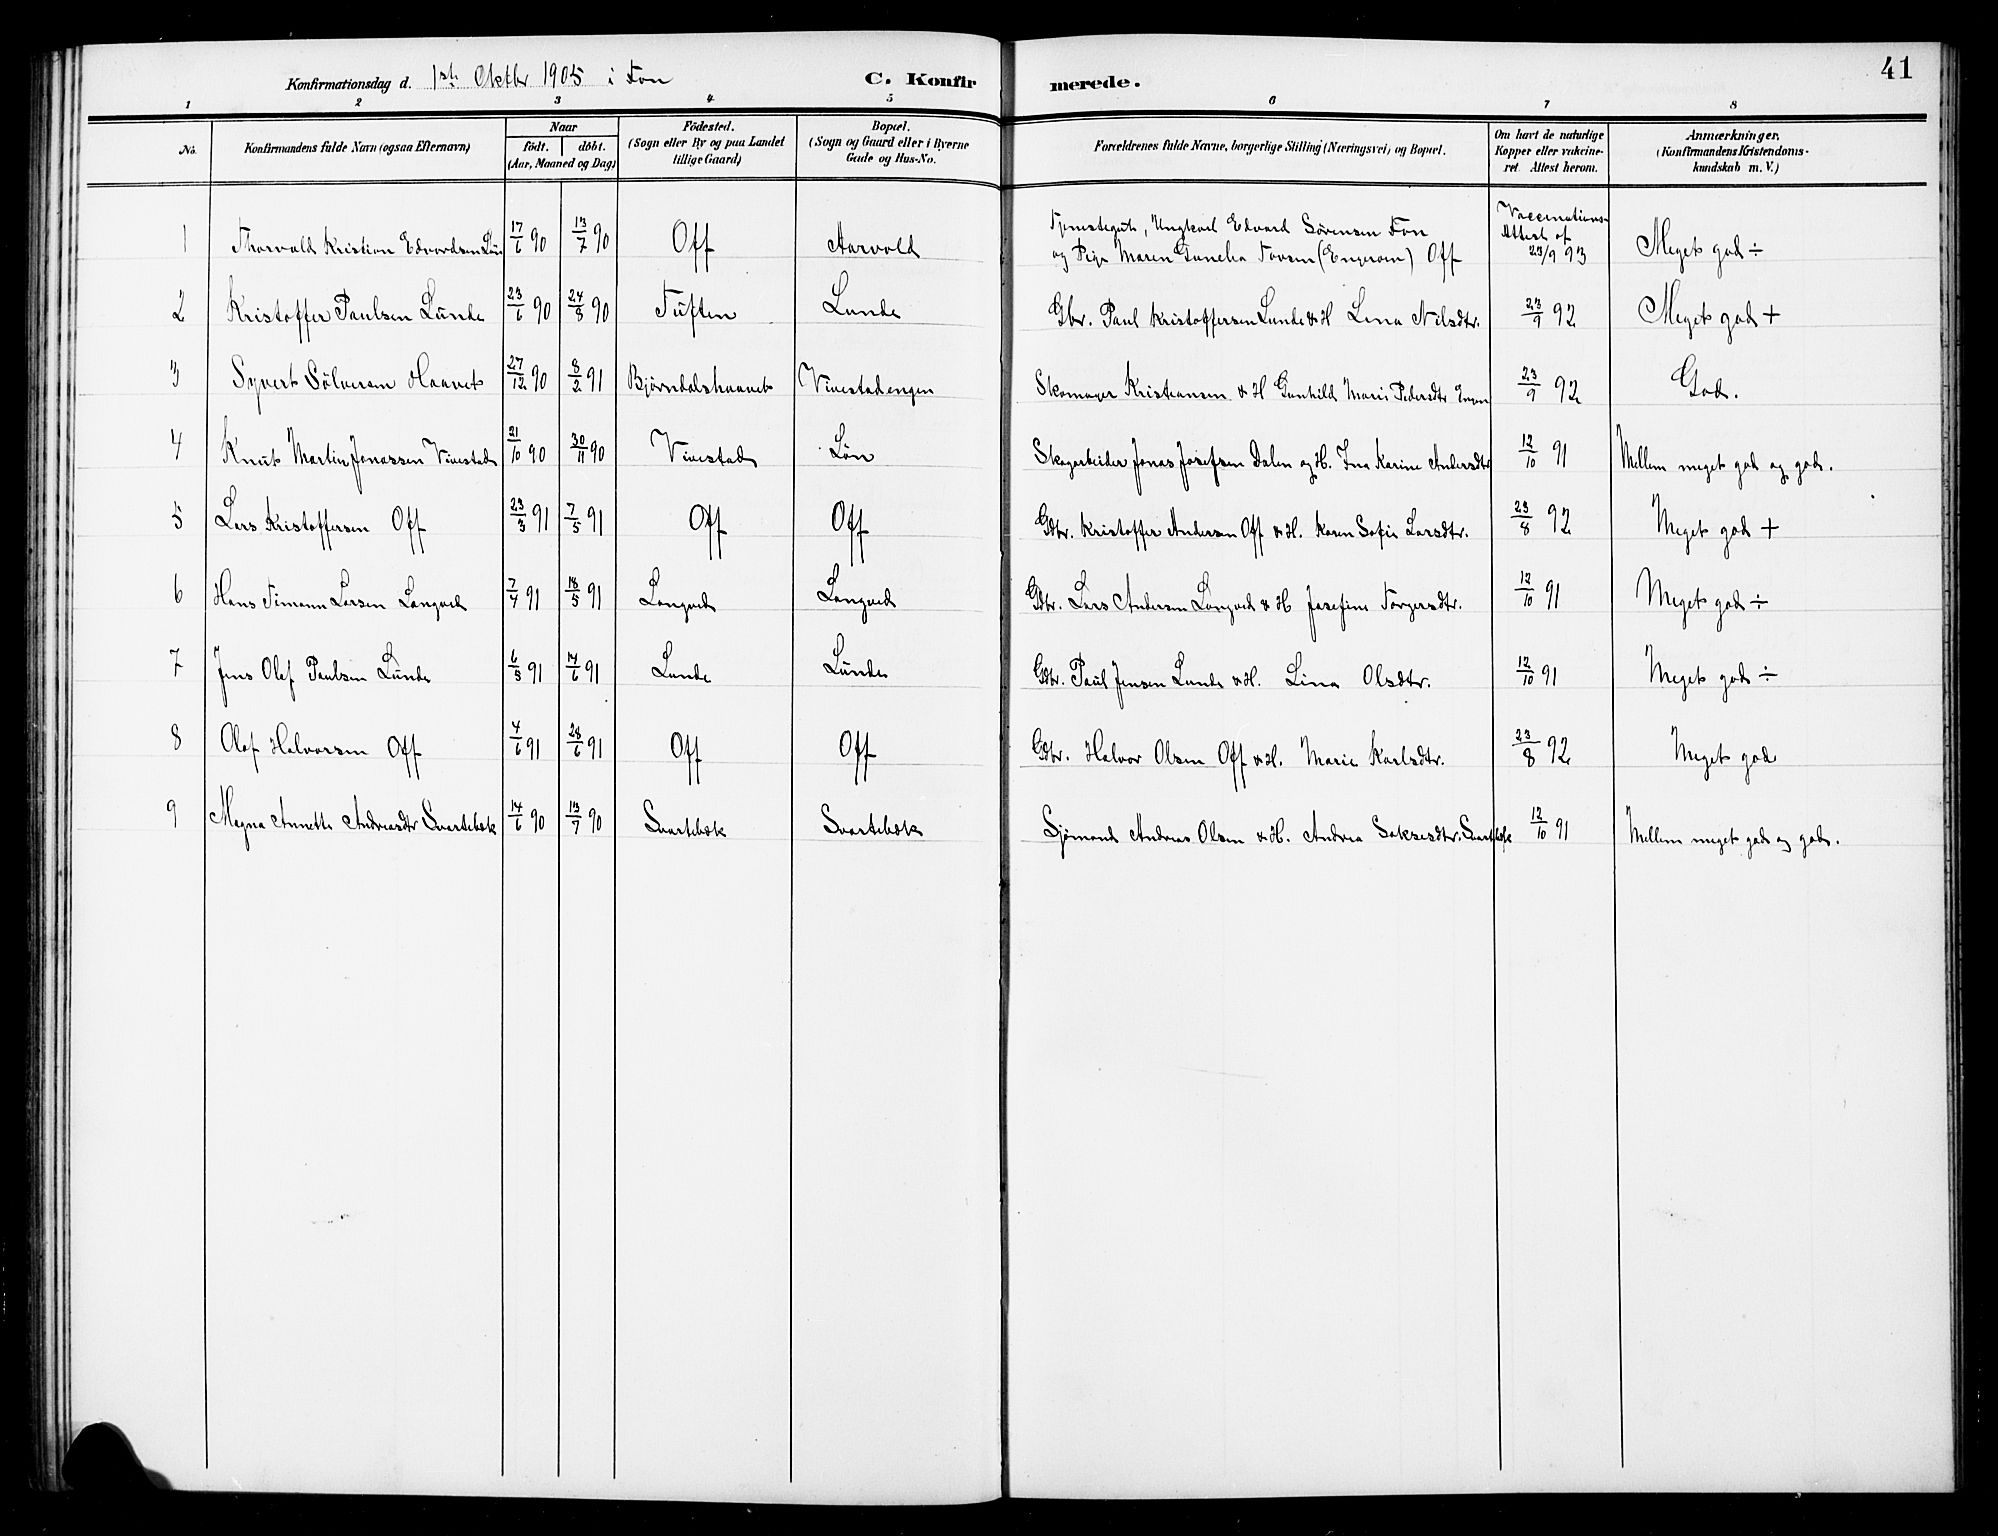 41
Konfirmationsdag d. 1ste Oktbr 1905 i Fon C. Konfirmerede.
1 2 3 4 5 6 7 8
No. | Konfirmandens fulde Navn (ogsaa Efternavn) | Naar födt. döbt. (Aar, Maaned og Dag) | Födested. (Sogn eller By og paa Landet tillige Gaard) | Bopæl. (Sogn og Gaard eller i Byerne Gade og Hus-No. | Forældrenes fulde Navne, borgerlige Stilling (Næringsvei) og Bopæl. | Om havt de naturlige Kopper eller vakcineret. Attest herom. | Anmærkninger. (Konfirmandens Kristendomskundskab m. V.)
1 | Thorvald Kristian Edvardsen | 17/6 90 | 13/7 90 | Off | Aarvold | Tjenestegut, Ungkarl Edvard Sörensen Fon og Pige Maren Gunelia Tovsen (Engerom) Off | Vaccinations-Attest af 23/9 93 | Meget god ÷
2 | Kristoffer Paulsen Lunde | 23/6 90 | 24/8 90 | Tuften | Lunde | Gbr. Paul Kristoffersen Lunde & H Lena Nilsdtr. | 23/9 92 | Meget god +
3 | Syvert Sölversen Haavet | 27/12 90 | 8/2 91 | Björndalshaavet | Vivestadengen | Skomager Kristiansen & H Gunhild Marie Pedersdtr Engen | 23/9 92 | God.
4 | Knut Martin Jonassen Vivestad | 21/10 90 | 30/11 90 | Vivestad | Lön | Skogarbeider Jonas Josefsen Dalen og H. Ina Karine Andersdtr | 12/10 91 | Mellem meget god og god.
5 | Lars Kristoffersen Off | 23/3 91 | 7/5 91 | Off | Off | Gdbr. Kristoffer Andersen Off & H. Karen Sofie Larsdtr. | 23/8 92 | Meget god +
6 | Hans Timann Larsen Langved | 7/4 91 | 18/5 91 | Langved | Langved | Gdbr. Lars Andersen Langved & H Josefine Torgersdtr. | 12/10 91 | Meget god ÷
7 | Jens Olaf Paulsen Lunde | 6/5 91 | 14/6 91 | Lunde | Lunde | Gdbr. Paul Jensen Lunde & H. Lina Olsdtr. | 12/10 91 | Meget god ÷
8 | Olaf Halvorsen Off | 4/6 91 | 28/6 91 | Off | Off | Gdbr. Halvor Olsen Off & H. Marie Karlsdtr. | 23/8 92 | Meget god
9 | Magna Annette Andreasdtr Svartebæk | 14/6 90 | 13/7 90 | Svartebæk | Svartebæk | Sjömand Andreas Olsen & H. Andrea Saksesdtr. Svartebæk | 12/10 91 | Mellem meget god og god.